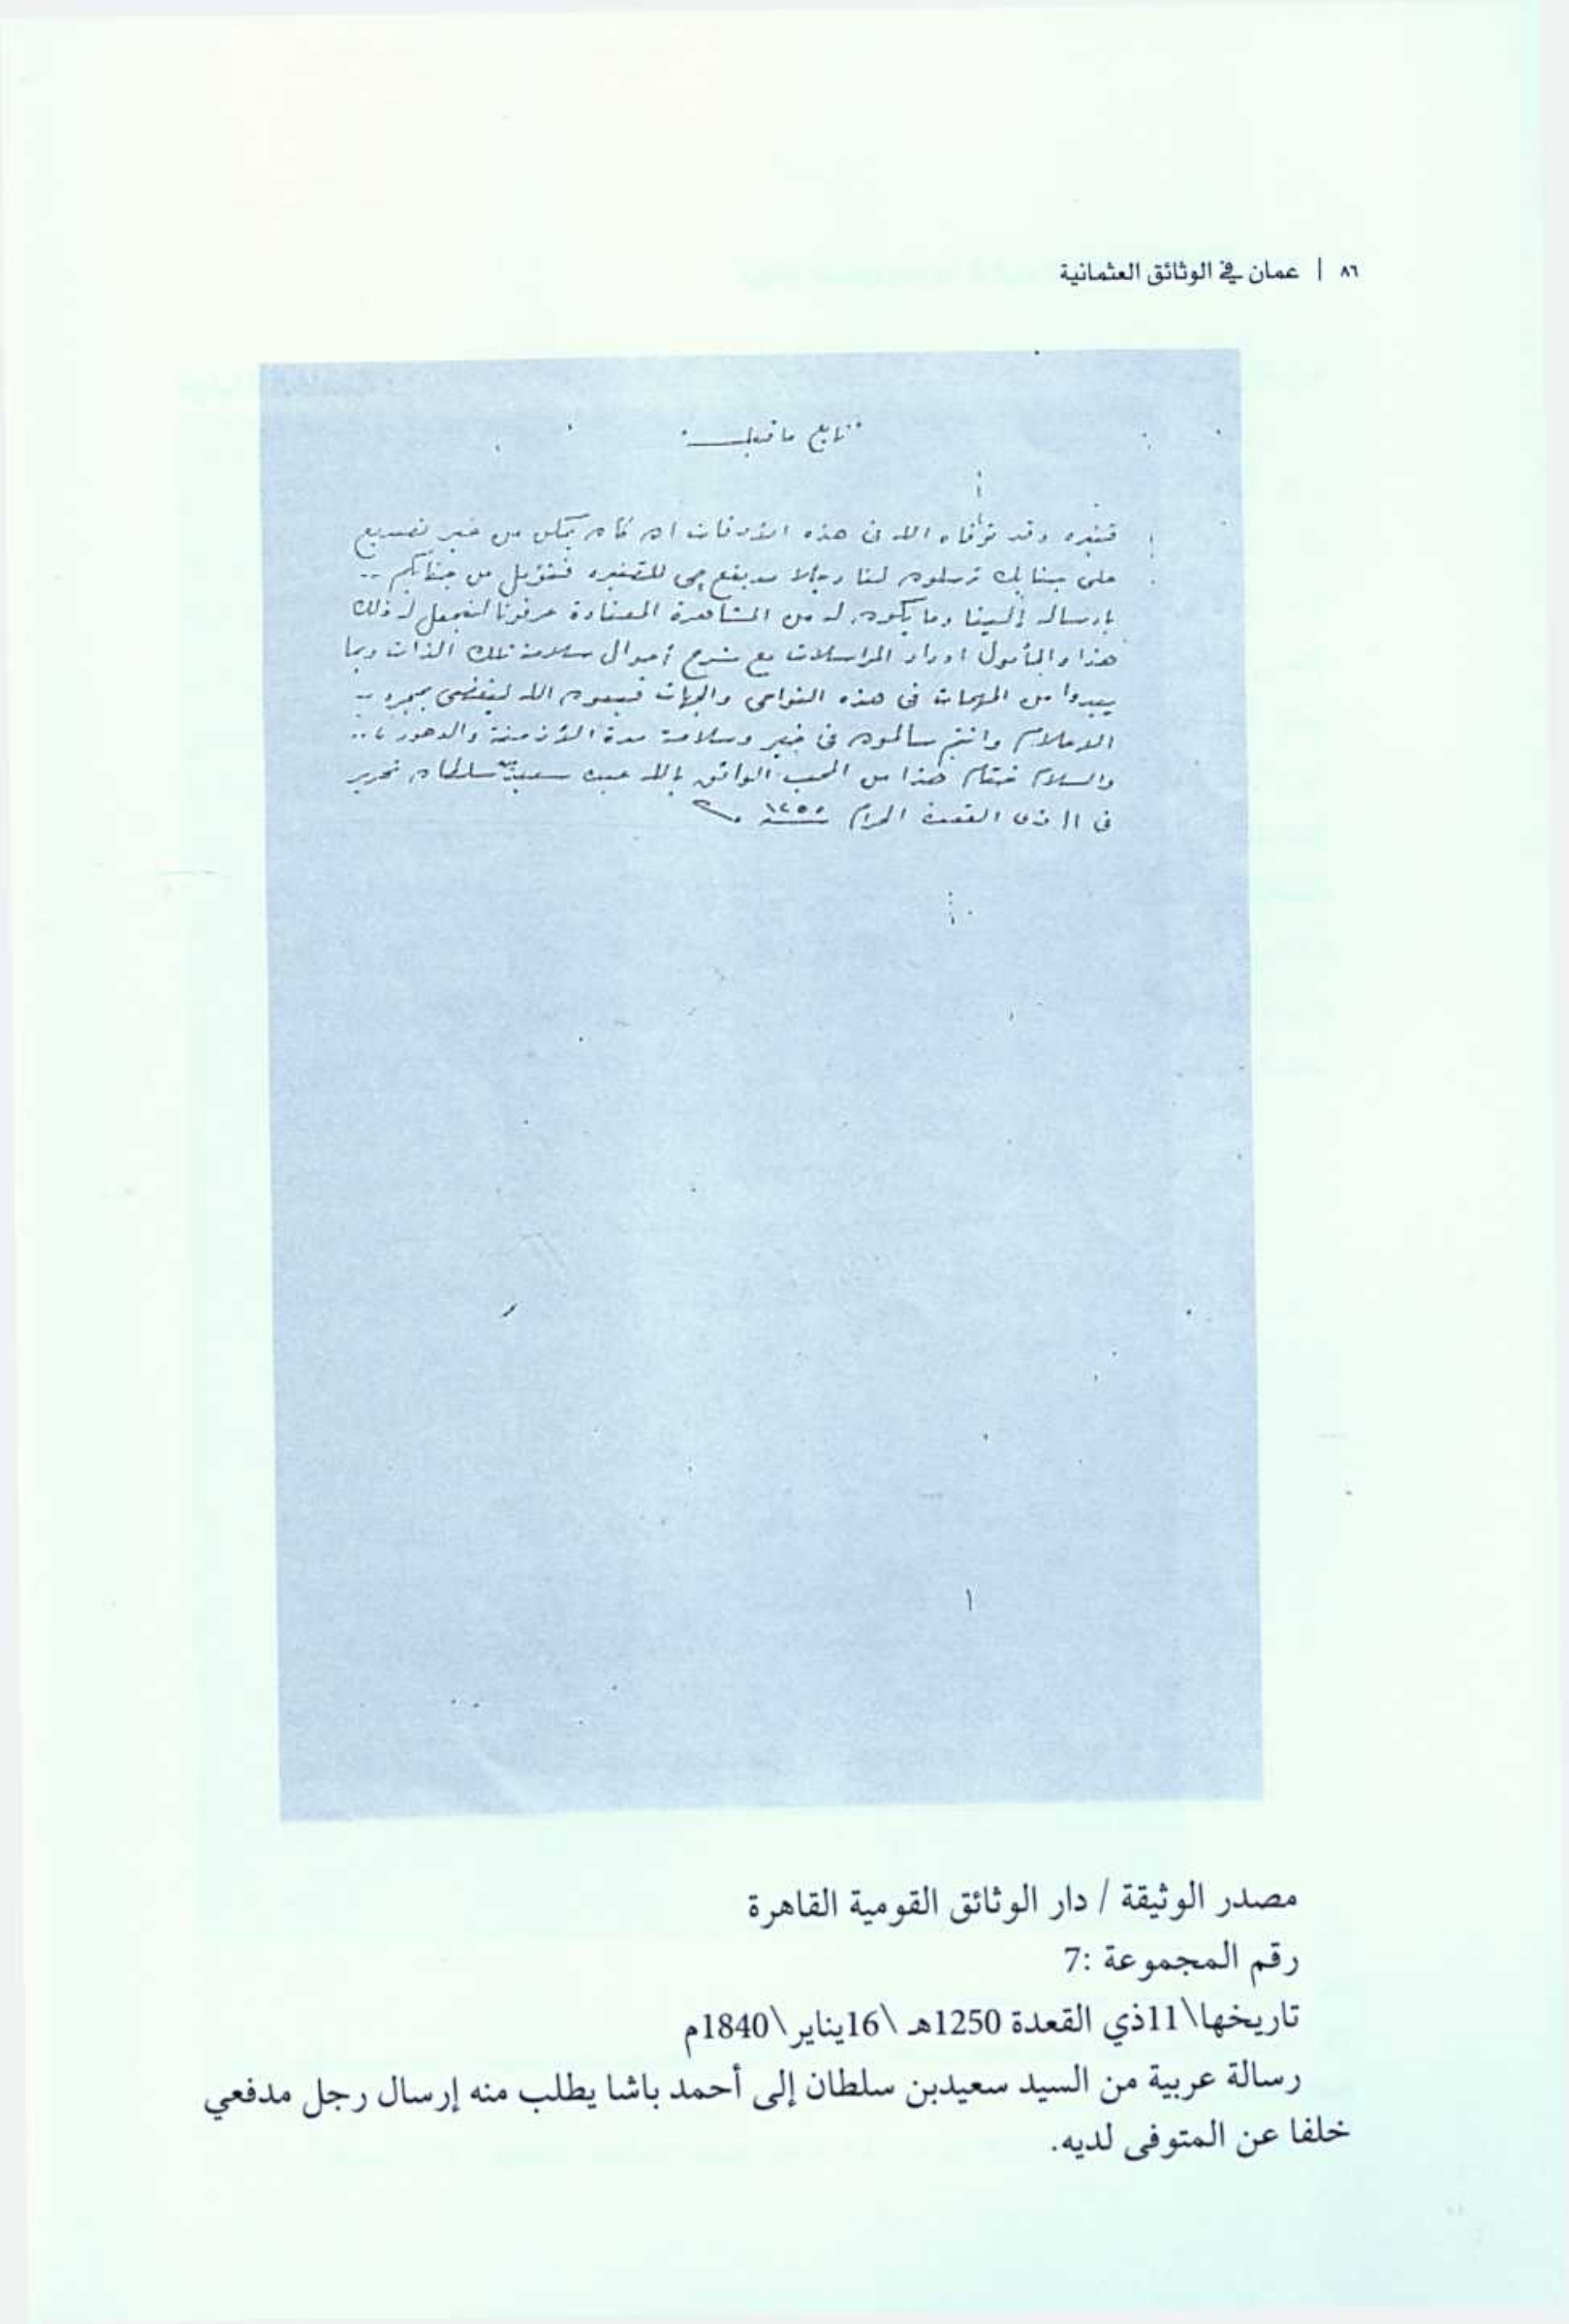 ٨٦ | عمان في الوثائق العثمانية
تابع ما قبله
قنبره وقد توفاه الله فى هذه الأوقات ان كان يمكن من غير تصديع
على جنابك ترسلون لنا رجلا للقنبره من جنابكم ..
بإرساله إلينا وما يكون له من المشاهرة المعتادة عرفونا لنجعل له ذلك
هذا والمأمول المراسلات مع شرح أحوال سلامة تلك الذات وبما
يبدوا من المهمات فى هذه النواحى والجهات فبعون الله ليقضى بمجرد ..
الاعلام وانتم سالمون فى خير وسلامة مدة الأزمنة والدهور ..
والسلام ختام هذا من المحب الواثق بالله عبده سعيد بن سلطان تحرير
فى ١١ ذى القعدة الحرام سنة ١٢٥٥
مصدر الوثيقة / دار الوثائق القومية القاهرة
رقم المجموعة :7
تاريخها\11ذي القعدة 1250هـ \16يناير\1840م
رسالة عربية من السيد سعيدبن سلطان إلى أحمد باشا يطلب منه إرسال رجل مدفعي
خلفا عن المتوفى لديه.